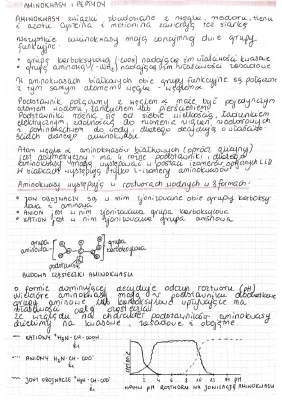 AMINOKWASY I PEPTYDY
AMINOKWASY związki zbudowane z węgla, wodoru, tlenu
i azotu. Cysteina i metionina zawierają też siarkę
Wszystkie aminokwasy mają conajmniej dwie grupy
funkcyjne
• grupę karboksylową (-COOH) nadającą im właściwości kwasowe
• grupę aminową (-NH₂) nadającą im właściwości zasadowe
W aminokwasach białkowych obie grupy funkcyjne są połączone
z tym samym atomem węgla - węglem α
Podstawnik połączony z węglem α może być pojedynczym
atomem wodoru, łańcuchem lub pierścieniem
Podstawniki różnią się od siebie wielkością, ładunkiem
elektrycznym, zdolnością do tworzenia wiązań wodorowych
i powinowactwem do wody, dlatego decydują o właściwo-
ściach danego aminokwasu
Atom węgla α aminokwasów białkowych (oprócz glicyny)
jest asymetryczny - ma 4 różne podstawniki dlatego
aminokwasy mogą występować w postaci izomerów optycznych L i D
W białkach występują tylko L-izomery aminokwasów
Aminokwasy występują w roztworach wodnych w 3 formach:
• JON OBOJNACZY są w nim zjonizowane obie grupy karboksy-
lowa i aminowa
• ANION jest w nim zjonizowana grupa karboksylowa
• KATION jest w nim zjonizowana grupa aminowa
grupa
aminowa
grupa
karboksylowa
podstawnik
BUDOWA CZĄSTECZKI AMINOKWASU
O formie dominującej decyduje odczyn roztworu (pH)
Niektóre aminokwasy mają w podstawniku dodatkowe
grupy aminowe lub karboksylowe wpływające na
Ze względu na charakter podstawników aminokwasy
dzielimy na kwasowe, zasadowe i obojętne
KATIONY ⁺H₃N-CH-COOH
R₁
ANIONY H₂N-CH-COO⁻
R₁
JONY OBOJNACZE ⁺H₃N-CH-COO⁻
R₁
2 4 6 8 10 12 14 pH
WPŁYW PH ROZTWORU NA JONIZACJĘ AMINOKWASU